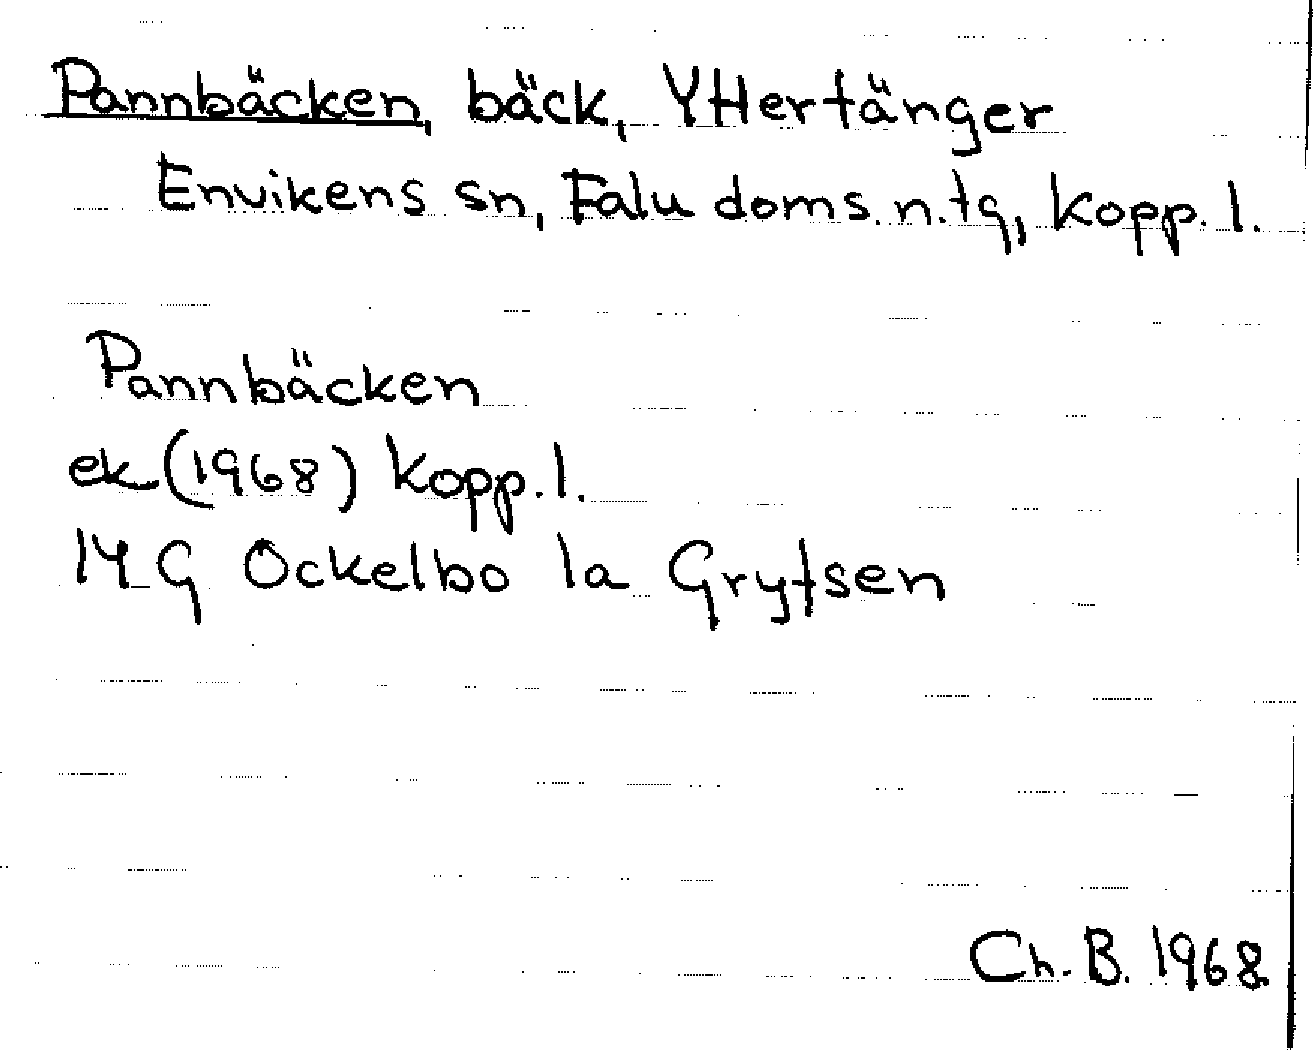 Pannbäcken, bäck, Yttertänger
Envikens sn, Falu doms. n. tg, Kopp. l.
Pannbäcken
ek (1968) Kopp. l.
14 G Ockelbo 1a Grytsen
Ch. B. 1968